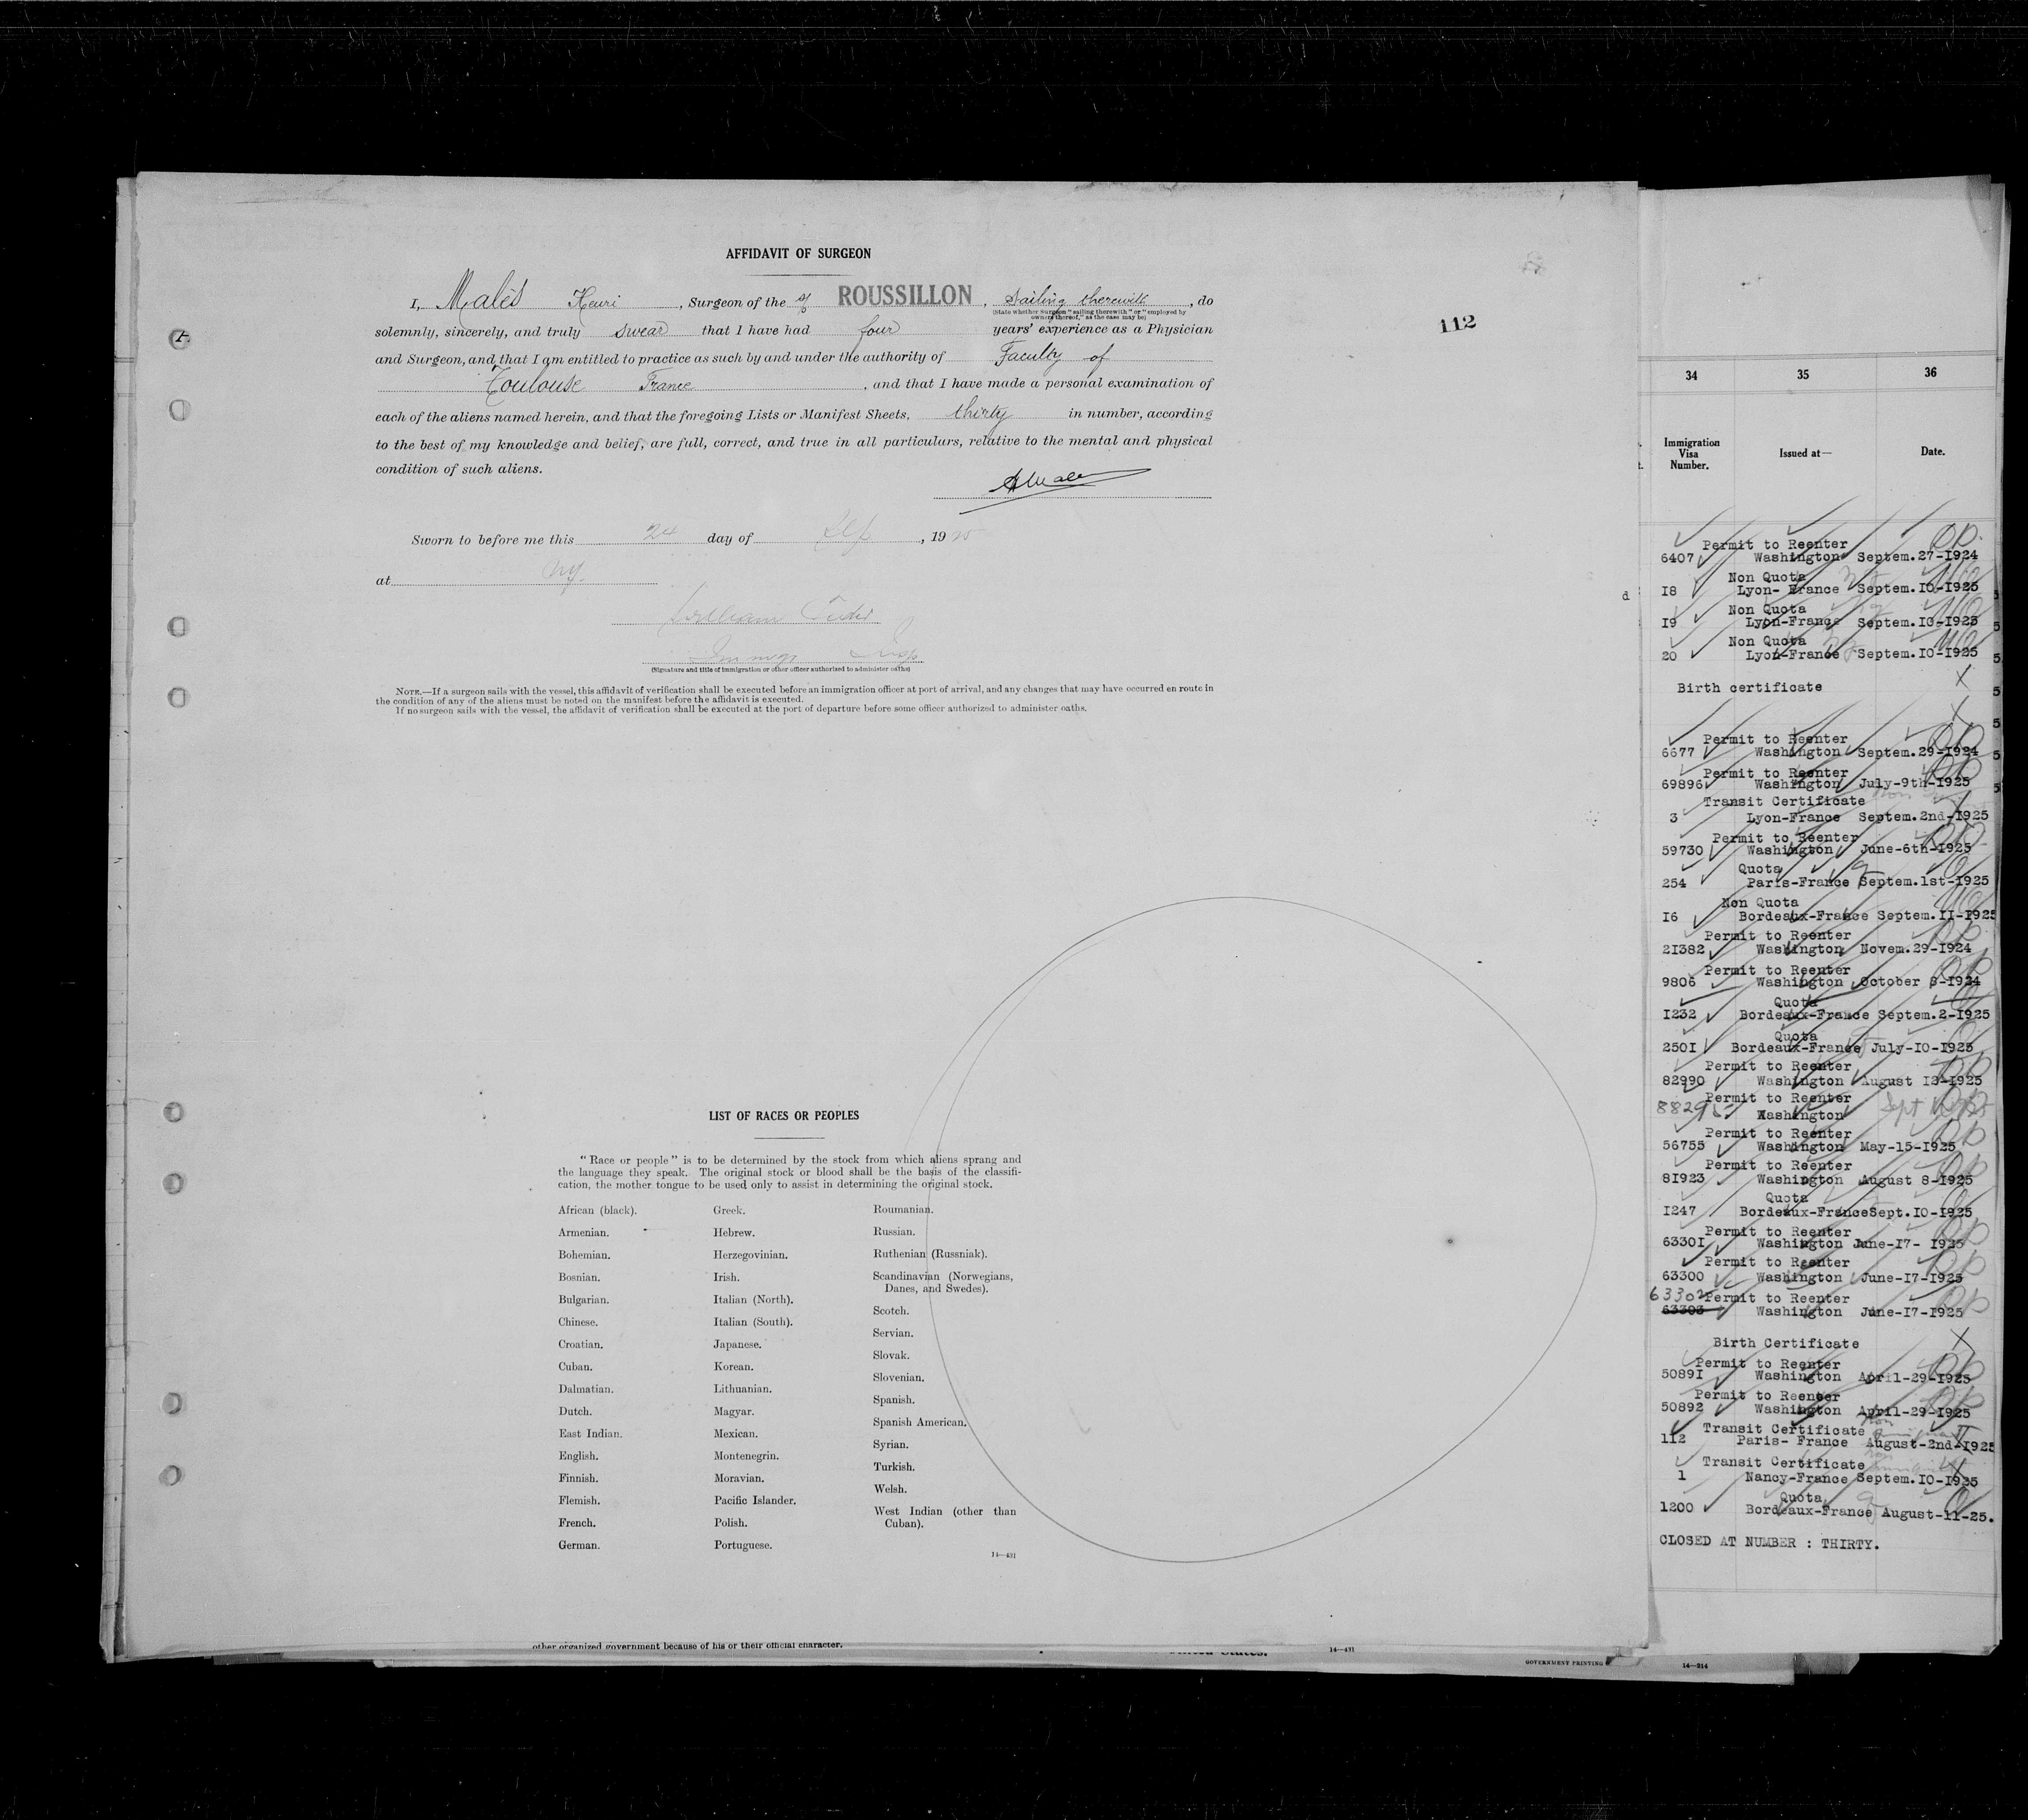 AFFIDAVIT OF SURGEON
I, Malès Henri, Surgeon of the S/ ROUSSILLON, Sailing therewith, do
(State whether Surgeon "sailing therewith" or "employed by
owners thereof," as the case may be)
112
solemnly, sincerely, and truly swear that I have had four years' experience as a Physician
and Surgeon, and that I am entitled to practice as such by and under the authority of Faculty of
Toulouse France, and that I have made a personal examination of
each of the aliens named herein, and that the foregoing Lists or Manifest Sheets, thirty in number, according
to the best of my knowledge and belief, are full, correct, and true in all particulars, relative to the mental and physical
condition of such aliens.
Sworn to before me this 24 day of Sep, 1925
at NY.
William
Immigr Insp
(Signature and title of immigration or other officer authorized to administer oaths)
NOTE.—If a surgeon sails with the vessel, this affidavit of verification shall be executed before an immigration officer at port of arrival, and any changes that may have occurred en route in
the condition of any of the aliens must be noted on the manifest before the affidavit is executed.
If no surgeon sails with the vessel, the affidavit of verification shall be executed at the port of departure before some officer authorized to administer oaths.
LIST OF RACES OR PEOPLES
"Race or people" is to be determined by the stock from which aliens sprang and
the language they speak. The original stock or blood shall be the basis of the classifi-
cation, the mother tongue to be used only to assist in determining the original stock.
African (black).
Armenian.
Bohemian.
Bosnian.
Bulgarian.
Chinese.
Croatian.
Cuban.
Dalmatian.
Dutch.
East Indian.
English.
Finnish.
Flemish.
French.
German.
Greek.
Hebrew.
Herzegovinian.
Irish.
Italian (North).
Italian (South).
Japanese.
Korean.
Lithuanian.
Magyar.
Mexican.
Montenegrin.
Moravian.
Pacific Islander.
Polish.
Portuguese.
Roumanian.
Russian.
Ruthenian (Russniak).
Scandinavian (Norwegians,
Danes, and Swedes).
Scotch.
Servian.
Slovak.
Slovenian.
Spanish.
Spanish American.
Syrian.
Turkish.
Welsh.
West Indian (other than
Cuban).
14—431
other organized government because of his or their official character.
United States.
14—431
GOVERNMENT PRINTING
14—214
34 35 36
Immigration
Visa
Number.
Issued at—
Date.
Permit to Reenter
6407 Washington Septem.27-1924
Non Quota
18 Lyon-France Septem.10-1925
Non Quota
19 Lyon-France Septem.10-1925
Non Quota
20 Lyon-France Septem.10-1925
Birth certificate
Permit to Reenter
6677 Washington Septem.29-1924
Permit to Reenter
69896 Washington July-9th-1925
Transit Certificate
3 Lyon-France Septem.2nd-1925
Permit to Reenter
59730 Washington June-6th-1925
Quota
254 Paris-France Septem.1st-1925
Non Quota
16 Bordeaux-France Septem.11-1925
Permit to Reenter
21382 Washington Novem.29-1924
Permit to Reenter
9806 Washington October 8-1924
Quota
1232 Bordeaux-France Septem.2-1925
Quota
2501 Bordeaux-France July-10-1925
Permit to Reenter
82990 Washington August 13-1925
Permit to Reenter
Washington Sept
Permit to Reenter
56755 Washington May-15-1925
Permit to Reenter
81923 Washington August 8-1925
Quota
1247 Bordeaux-France Sept.10-1925
Permit to Reenter
63301 Washington June-17-1925
Permit to Reenter
63300 Washington June-17-1925
63302 Permit to Reenter
63303 Washington June-17-1925
Birth Certificate
Permit to Reenter
50891 Washington April-29-1925
Permit to Reenter
50892 Washington April-29-1925
Transit Certificate
112 Paris-France August-2nd-1925
Transit Certificate
1 Nancy-France Septem.10-1925
Quota
1200 Bordeaux-France August-11-25.
CLOSED AT NUMBER : THIRTY.